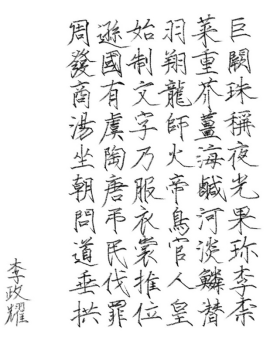 巨闕珠稱夜光果珎李柰
菜重芥薑海鹹河淡鱗潛
羽翔龍師火帝鳥官人皇
始制文字乃服衣裳推位
遜國有虞陶唐吊民伐罪
周發商湯坐朝問道垂拱
李政耀